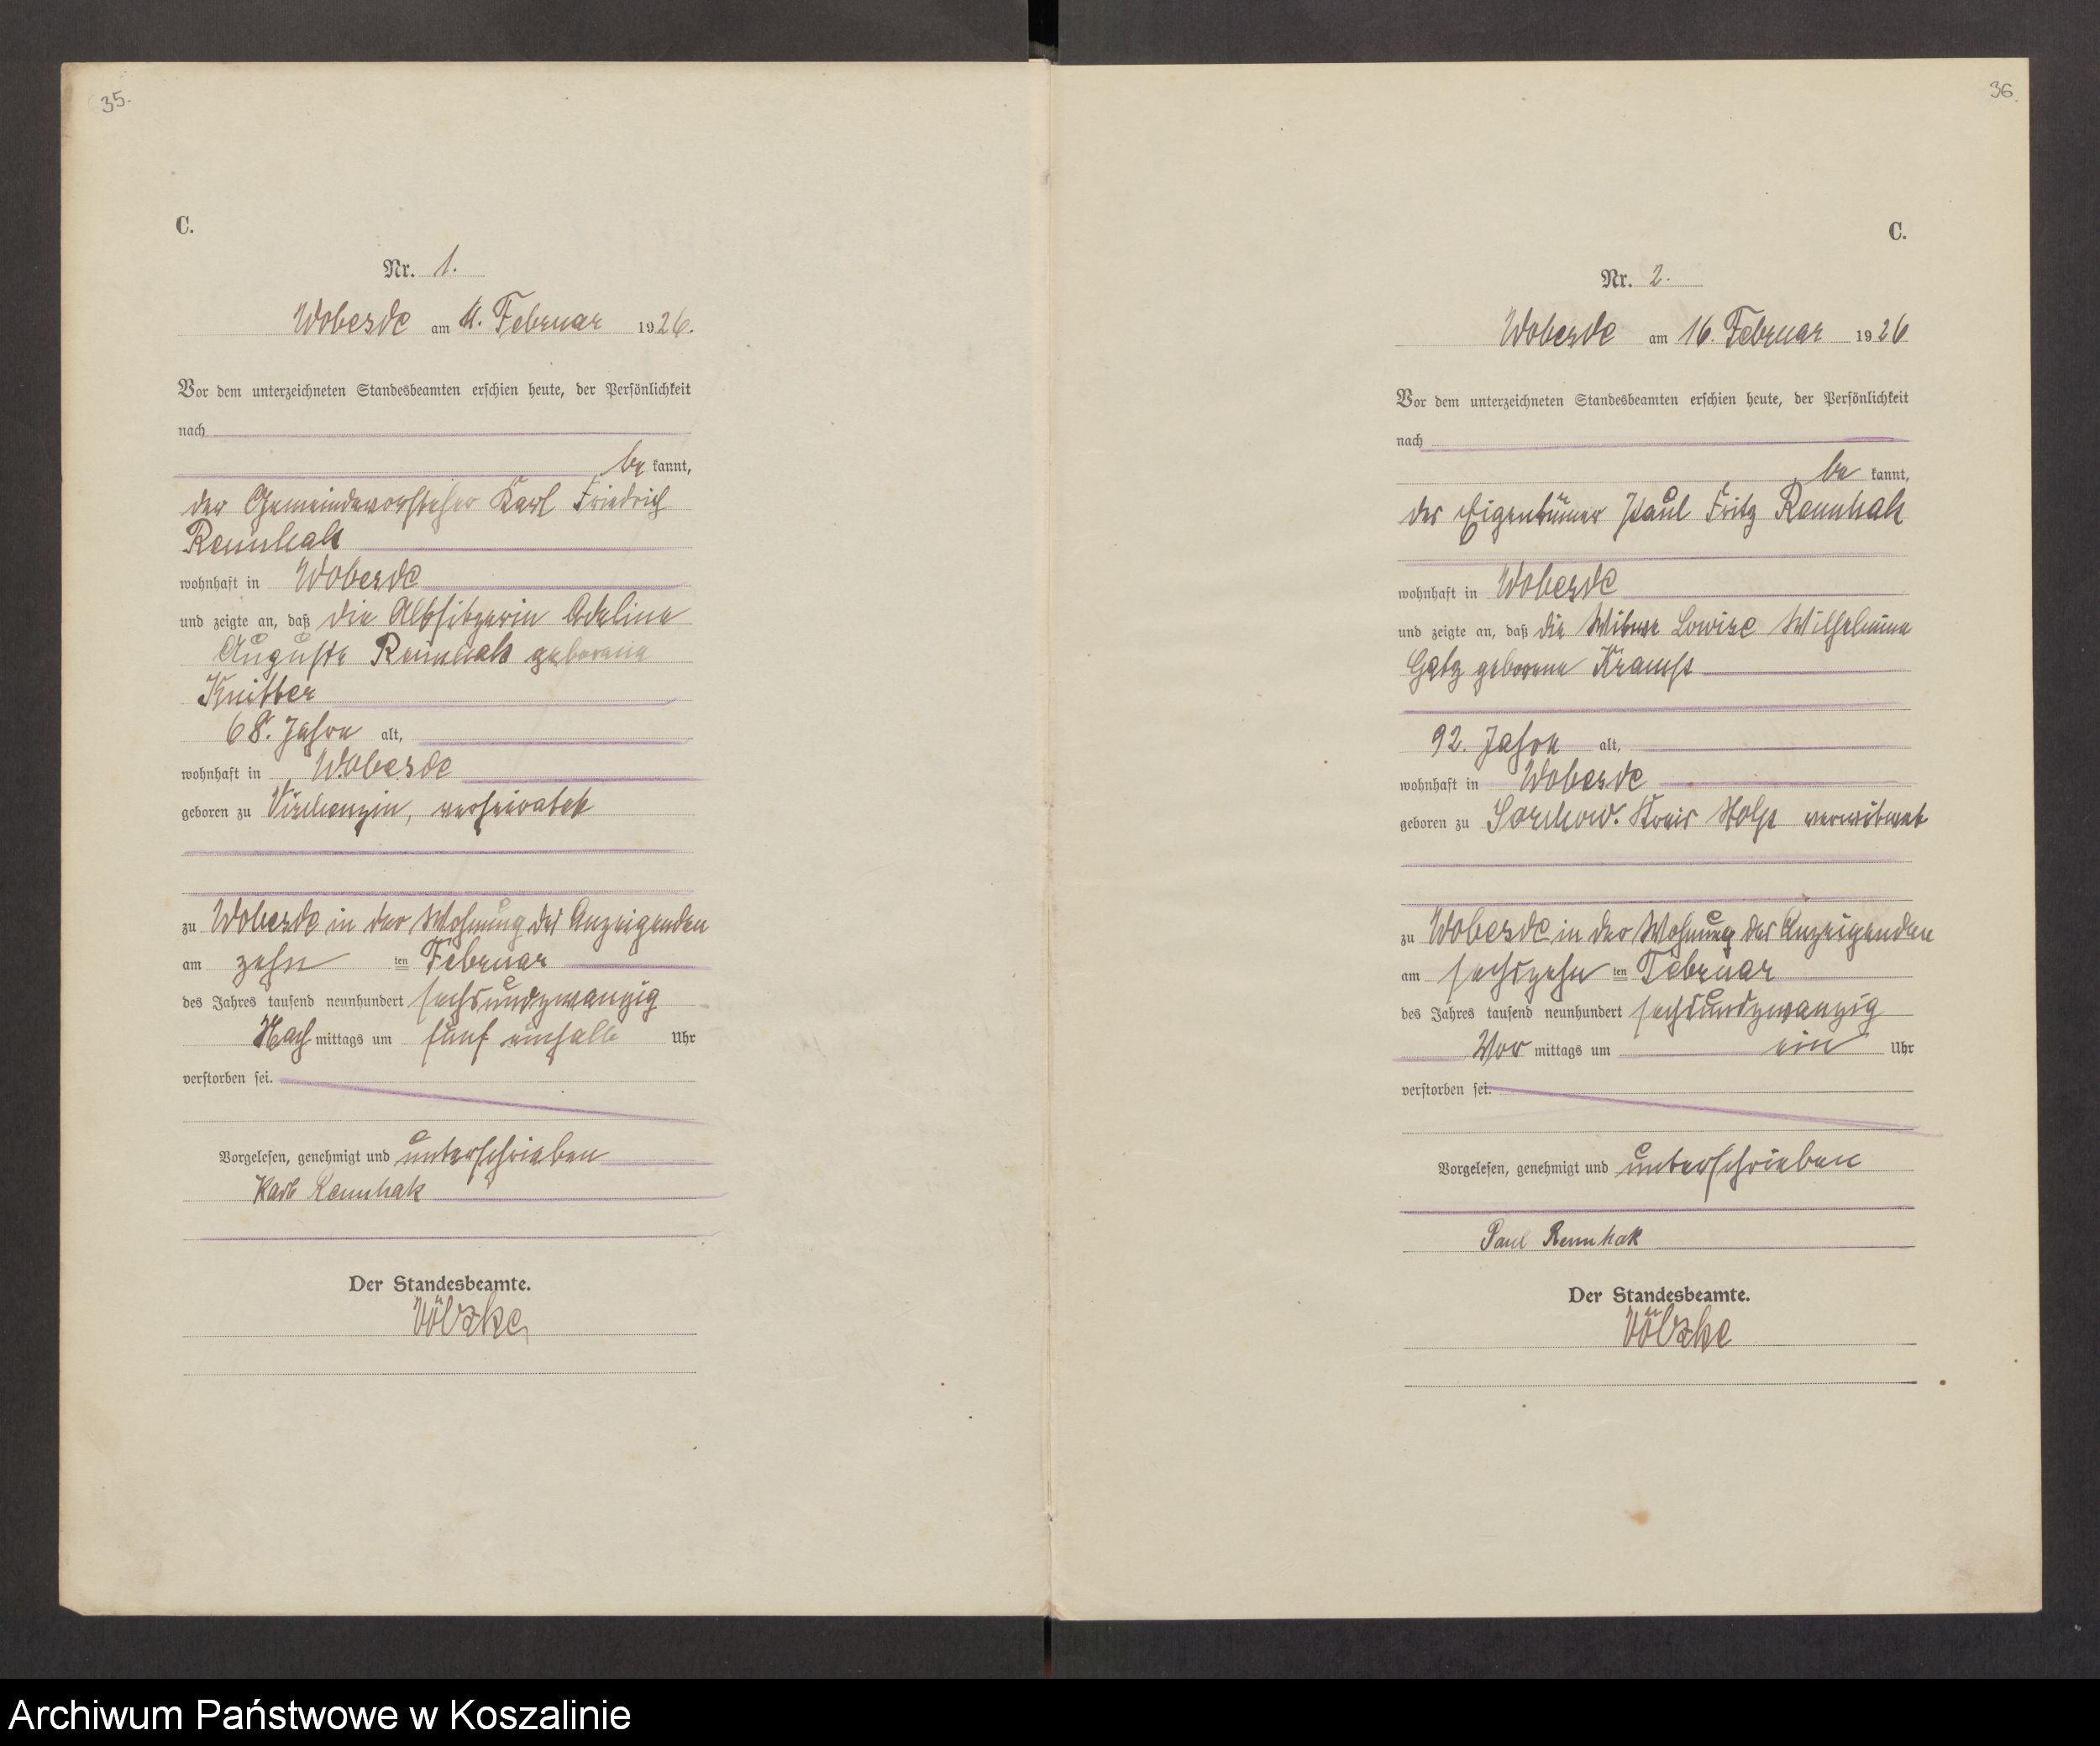 35.
C.
Nr. 1.
Wobesde am 11. Februar 1926.
Vor dem unterzeichneten Standesbeamten erschien heute, der Persönlichkeit
nach
be kannt,
der Gemeindevorsteher Karl Friedrich
Rennhak
wohnhaft in Wobesde
und zeigte an, daß die Altsitzerin Adeline
Auguste Rennhak geborene
Knitter
68. Jahre alt,
wohnhaft in Wobesde
geboren zu Virchenzin, verheiratet
zu Wobesde in der Wohnung des Anzeigenden
am zehn ten Februar
des Jahres tausend neunhundert sechsundzwanzig
Nach mittags um fünf einhalb Uhr
verstorben sei.
Vorgelesen, genehmigt und unterschrieben
Karl Rennhak
Der Standesbeamte.
Völzke
36.
C.
Nr. 2.
Wobesde am 16. Februar 1926
Vor dem unterzeichneten Standesbeamten erschien heute, der Persönlichkeit
nach
be kannt,
der Eigentümer Paul Fritz Rennhak
wohnhaft in Wobesde
und zeigte an, daß die Witwe Lowise Wilhelmine
Getz geborene Kramp
92. Jahre alt,
wohnhaft in Wobesde
geboren zu Sorchow. Kreis Stolp verwitwet
zu Wobesde in der Wohnung des Anzeigenden
am sechszehn ten Februar
des Jahres tausend neunhundert sechsundzwanzig
Vor mittags um ein Uhr
verstorben sei.
Vorgelesen, genehmigt und unterschrieben
Paul Rennhak
Der Standesbeamte.
Völzke
Archiwum Państwowe w Koszalinie